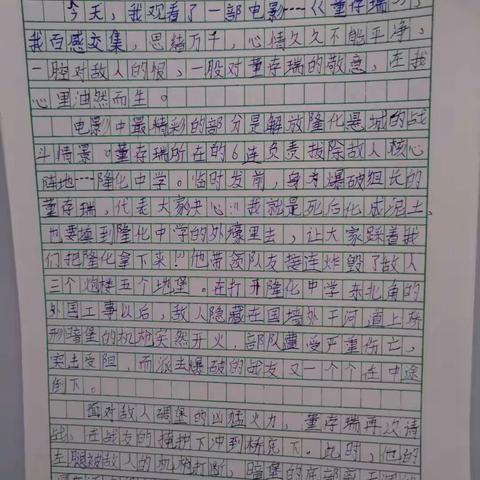 今天，我观看了一部电影……《董存瑞》，
我百感交集，思绪万千，心情久久不能平净，
一腔对敌人的恨，一股对董存瑞的敬意，在我
心里油然而生。
电影中最精彩的部分是解放隆化县城的战
斗情景。董存瑞所在的6连负责拔除敌人核心
阵地……隆化中学。临时发前，身为爆破组长的
董存瑞，代表大家决心：“我就是死后化成泥土，
也要填到隆化中学的外壕里去，让大家踩着我
们把隆化拿下来！”他带领队友接连炸毁了敌人
三个炮楼五个地堡。在打开隆化中学东北角的
外国工事以后，敌人隐藏在国墙外干河道上桥
形暗堡的机枪突然开火，部队遭受严重伤亡，
突击受阻，而派去爆破的战友又一个个在中途
倒下。
面对敌人碉堡的凶猛火力，董存瑞再次请
战，在战友的掩护下冲到桥底下。此时，他的
左腿被敌人的机枪打断，暗堡的底部